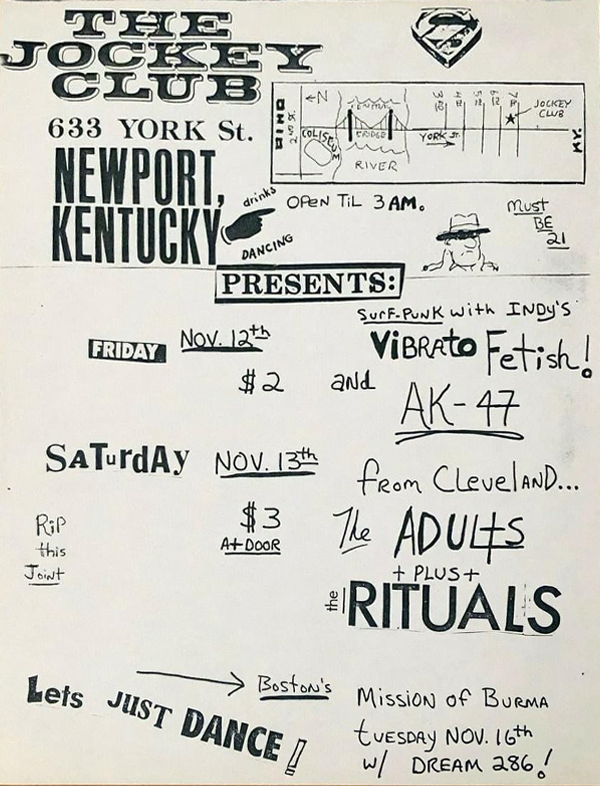 THE
JOCKEY
CLUB
633 YORK St.
NEWPORT,
KENTUCKY
OHIO
2ND ST.
←N
COLISEUM
CENTRAL
BRIDGE
RIVER
YORK ST.
3RD
4TH
5TH
6TH
7TH
JOCKEY
CLUB
KY.
drinks
DANCING
OPEN TIL 3 AM.
Must
BE
21
PRESENTS:
SURF-PUNK with INDY'S
ViBRAto Fetish!
FRIDAY NOV. 12th
$2 and
AK-47
SATurdAy NOV. 13th
from CLeveLAND...
$3
At DOOR
The ADULtS
RiP
this
Joint
+ PLUS +
the RITUALS
Lets JUST DANCE!
Boston's
Mission of BURMA
tUESDAY NOV. 16th
W/ DREAM 286!